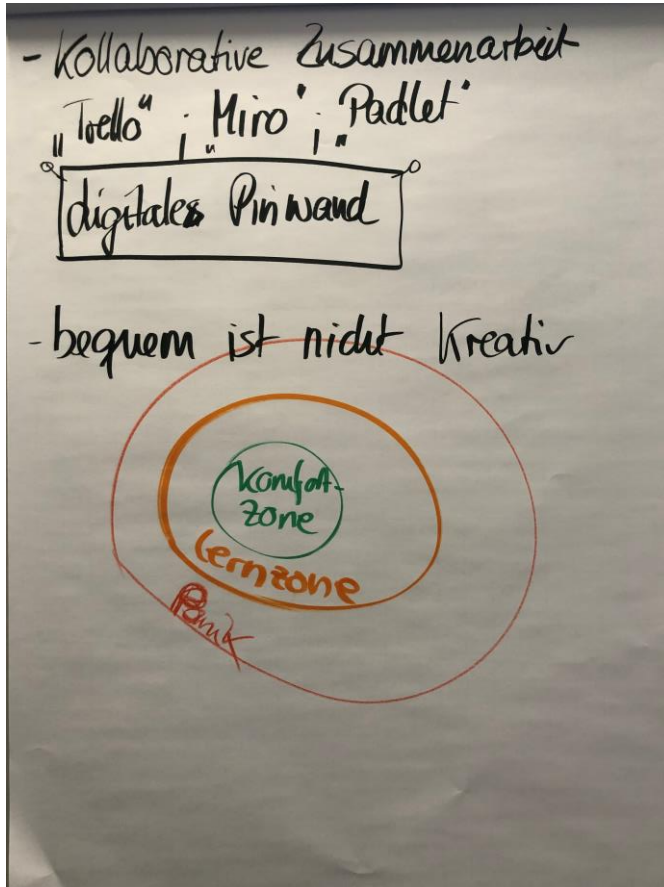 - Kollaborative Zusammenarbeit
„Trello“ ; „Miro“ ; „Padlet“
digitales Pinwand
- bequem ist nicht Kreativ
Komfort-
zone
Lernzone
Panik